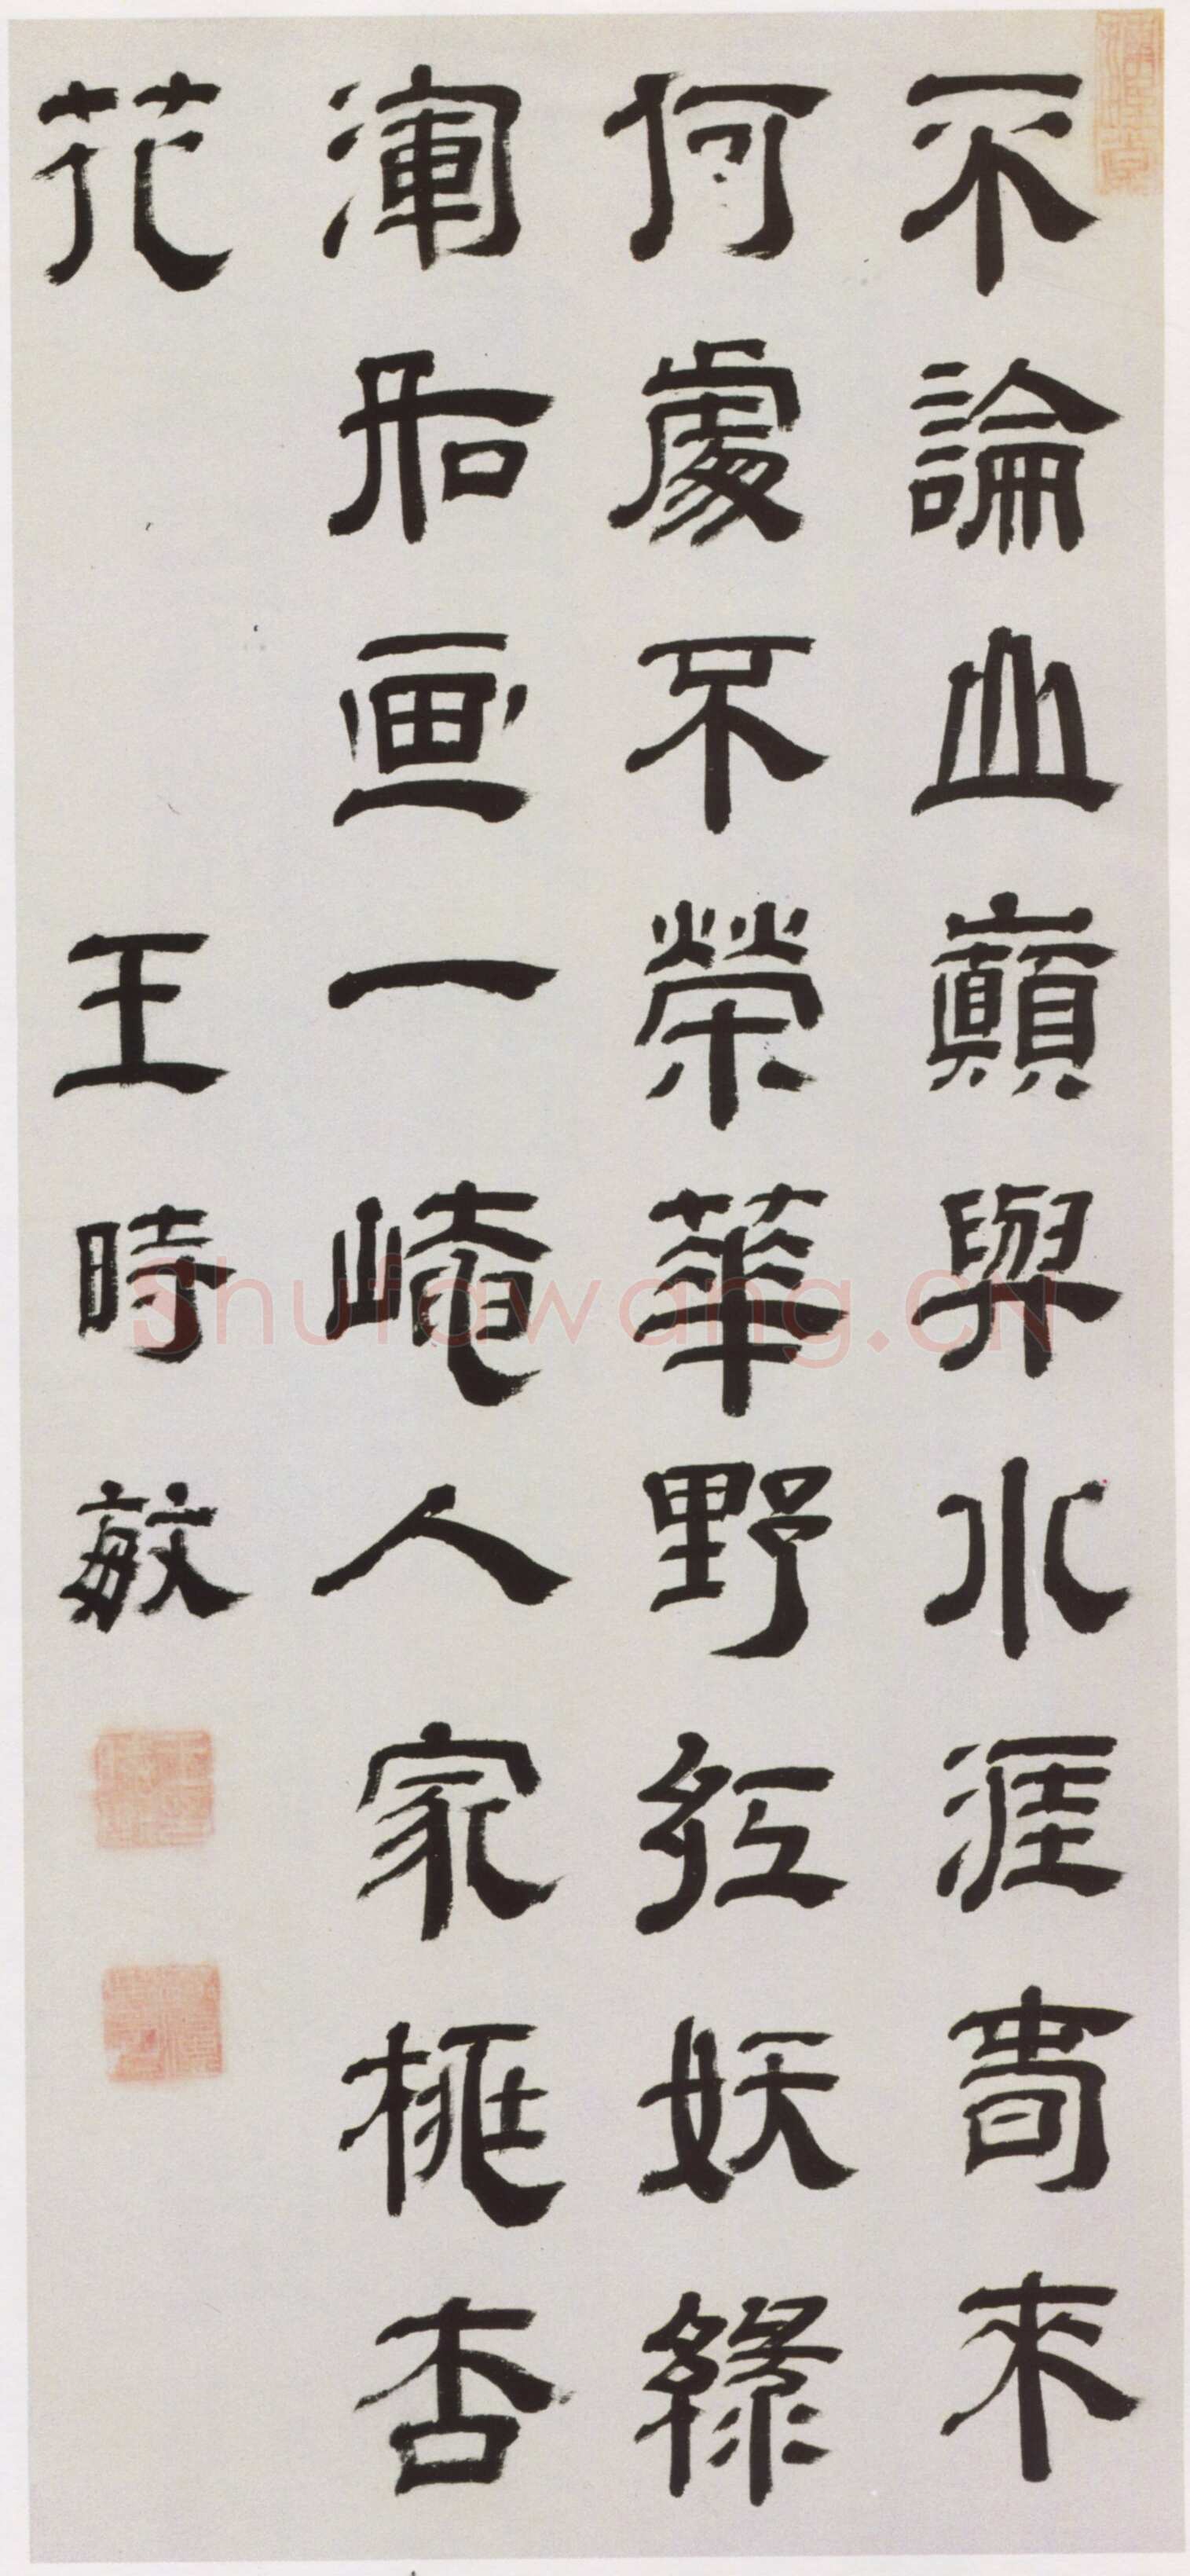 不論山巔與水涯春來
何處不榮華野紅妖綠
渾如画一崦人家桃杏
花
王時敏
Shufawang.CN